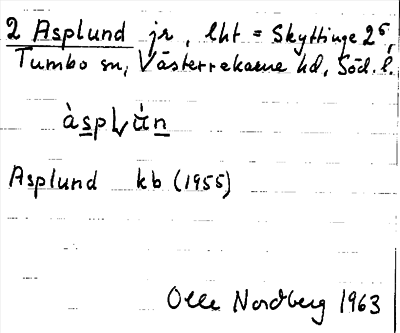 2 Asplund jr, lht = Skyttinge 2⁵,
Tumbo sn, Västerrekarne hd, Söd. l.
àspLùn
Asplund kb (1955)
Olle Nordberg 1963